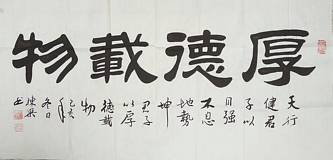 厚德載物
天行
健君
子以
自强
不息
地勢
坤
君子
以厚
德載
物
己亥
冬日